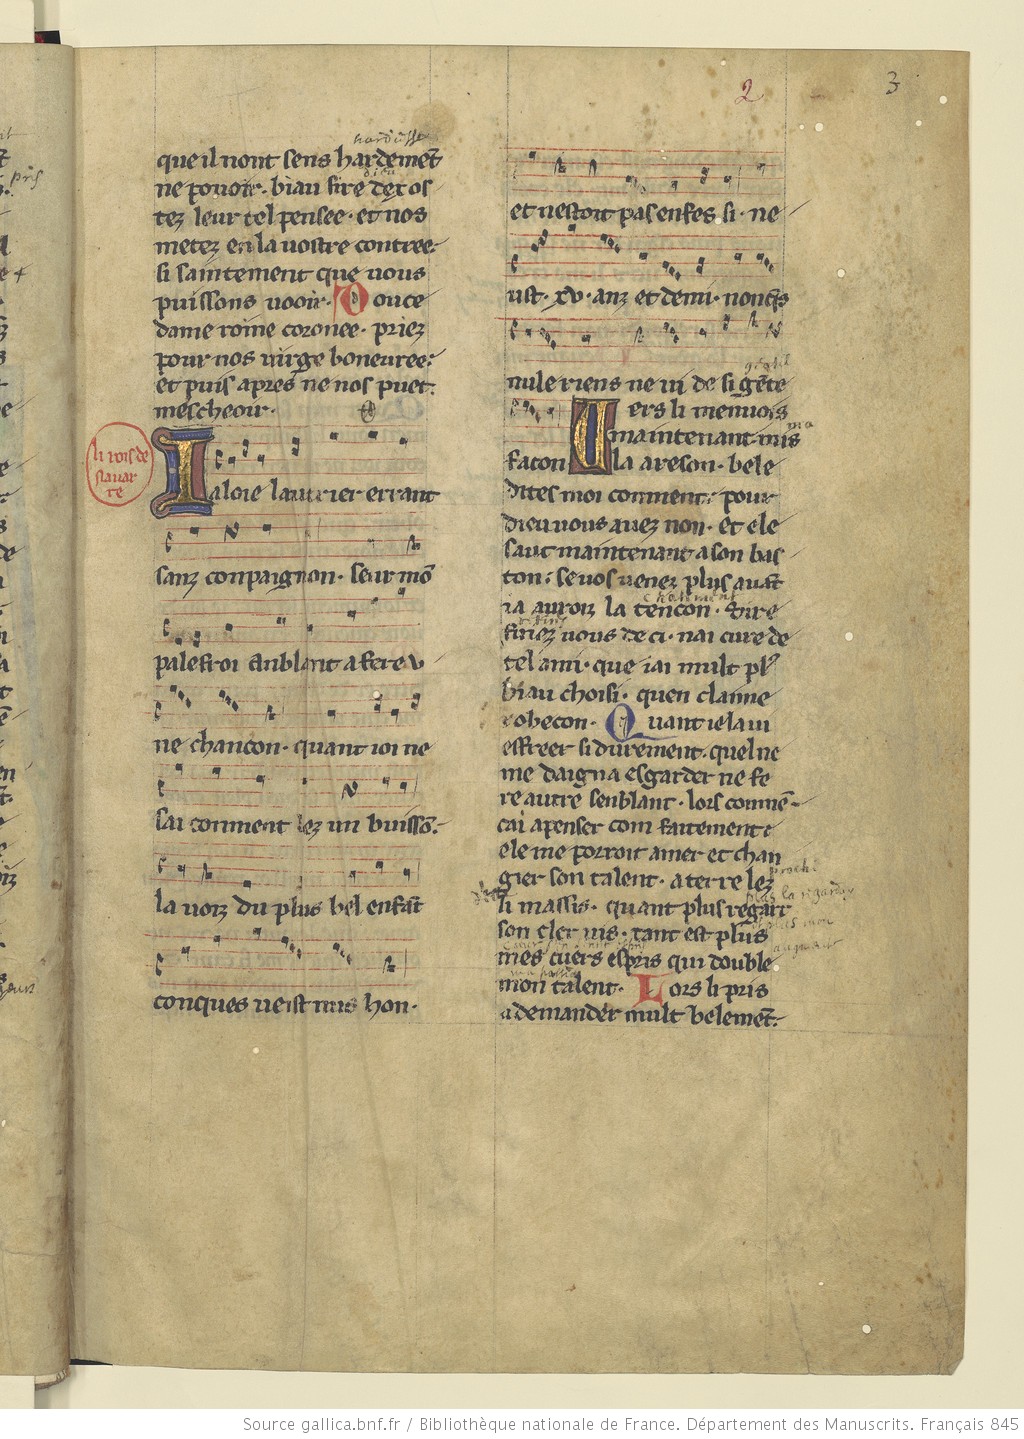 2
3
que il nont sens hardemẽt
ne pouoir. biau sire dex os
tez leur tel pensee. et nos
metez en la uostre contree.
si saintement que uous
puissons uooir. Douce
dame roine coronee. priez
pour nos uirge boneuree.
et puis apres ne nos puet.
mescheoir.
li rois de
nauar
re
Ialoie lautrier errant
sanz conpaignon. seur mõ
palefroi
a fere v
ne chancon. quant ioi ne
sai conment lez un buissõ.
la uoiz du plus bel enfãt
conques ueist nus hon.
et nestoit pas enfes si. ne
ust. xv. anz et demi. nonq̃s
nule riens ne ui de si gẽte
facon
Uers li menuois
maintenant. mis
la areson. bele
dites moi conment. pour
dieu uous auez non. et ele
saut maintenant a son bas
ton. se uos uenez plus auãt
ia auroiz la tencon. sire
fuiez uous de ci. nai cure de
tel ami. que iai mult pl᷒
biau choisi. quen claime
robecon. Quant ie la ui
effreer si durement. quel ne
me daigna esgarder ne fe
re autre senblant. lors conmẽ
cai a penser com faitement
ele me porroit amer et chan
gier son talent. a terre lez
li massis. quant plus regart
son cler uis. tant est plus
mes cuers espris qui double
mon talent. Lors li pris
a demander mult belemẽt.
Source gallica.bnf.fr / Bibliothèque nationale de France. Département des Manuscrits. Français 845